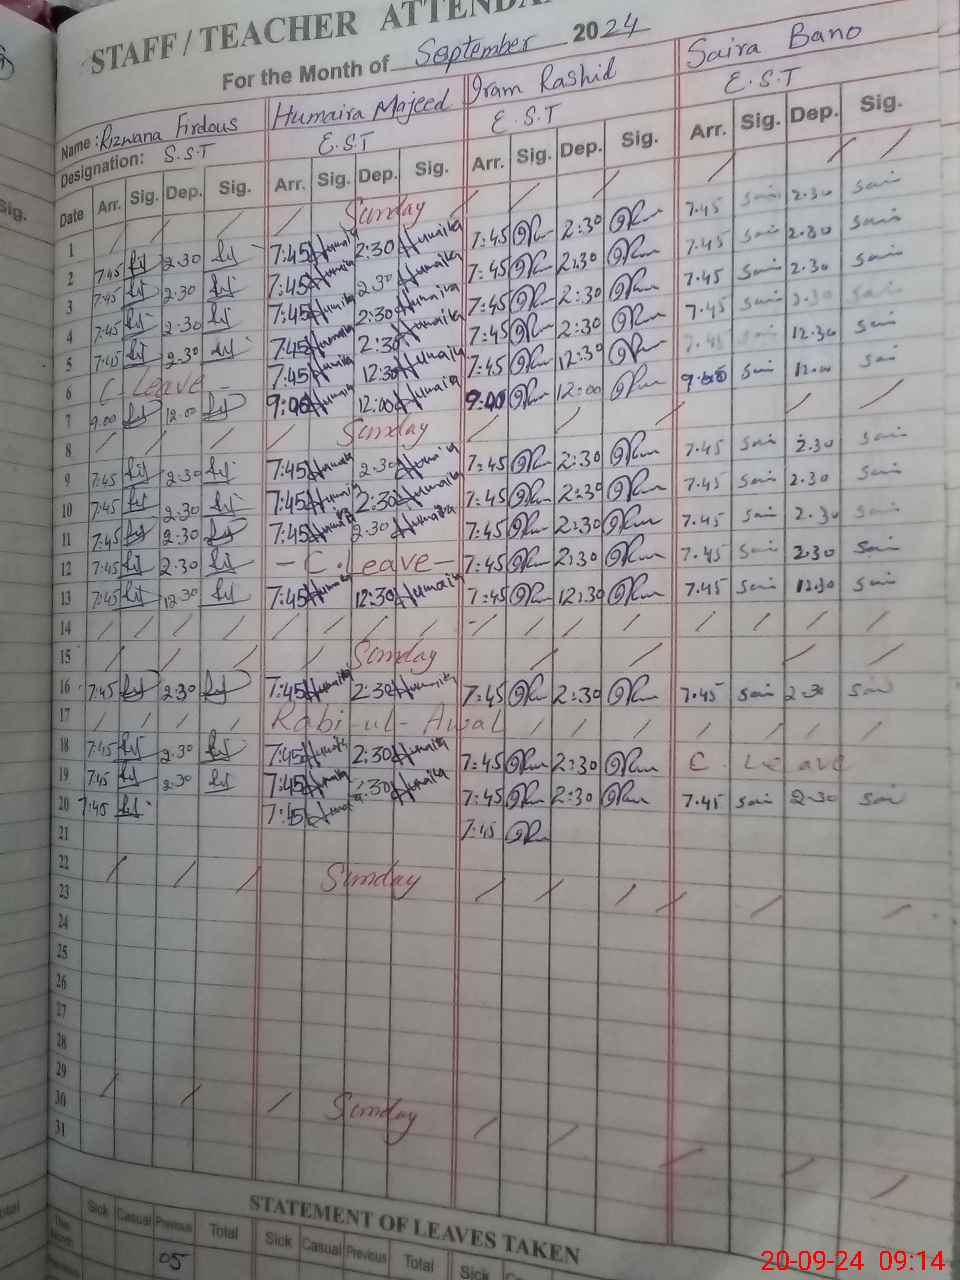 STAFF / TEACHER ATTENDA
For the Month of September 2024
Name: Rizwana Firdous Humaira Majeed Iram Rashid Saira Bano
Designation: S.S.T E.S.T E.S.T E.S.T
Date Arr. Sig. Dep. Sig. Arr. Sig. Dep. Sig. Arr. Sig. Dep. Sig. Arr. Sig. Dep. Sig.
1 Sunday
2 7:45 2:30 7:45 Humaira 2:30 Humaira 7:45 2:30 7.45 Sai 2.30 Sai
3 7:45 2:30 7:45 Humaira 2:30 Humaira 7:45 2:30 7.45 Sai 2.30 Sai
4 7:45 2:30 7:45 Humaira 2:30 Humaira 7:45 2:30 7.45 Sai 2.30 Sai
5 7:45 2:30 7:45 Humaira 2:30 Humaira 7:45 2:30 7.45 Sai 2.30 Sai
6 C Leave - 7:45 Humaira 12:30 Humaira 7:45 12:30 7.45 Sai 12.30 Sai
7 9:00 12:00 9:00 Humaira 12:00 Humaira 9:00 12:00 9.00 Sai 12.00 Sai
8 Sunday
9 7:45 2:30 7:45 Humaira 2:30 Humaira 7:45 2:30 7.45 Sai 2.30 Sai
10 7:45 2:30 7:45 Humaira 2:30 Humaira 7:45 2:30 7.45 Sai 2.30 Sai
11 7:45 2:30 7:45 Humaira 2:30 Humaira 7:45 2:30 7.45 Sai 2.30 Sai
12 7:45 2:30 - C.Leave - 7:45 2:30 7.45 Sai 2.30 Sai
13 7:45 12:30 7:45 Humaira 12:30 Humaira 7:45 12:30 7.45 Sai 12.30 Sai
14
15 Sunday
16 7:45 2:30 7:45 Humaira 2:30 Humaira 7:45 2:30 7.45 Sai 2.30 Sai
17 Rabi-ul-Awal
18 7:45 2:30 7:45 Humaira 2:30 Humaira 7:45 2:30 C. Leave
19 7:45 2:30 7:45 Humaira 2:30 Humaira 7:45 2:30 7.45 Sai 2.30 Sai
20 7:45 7:45 Humaira 7:45
21
22 Sunday
23
24
25
26
27
28
29
30 Sunday
31
STATEMENT OF LEAVES TAKEN
Sick Casual Previous Total Sick Casual Previous Total Sick
This Month 05
20-09-24 09:14